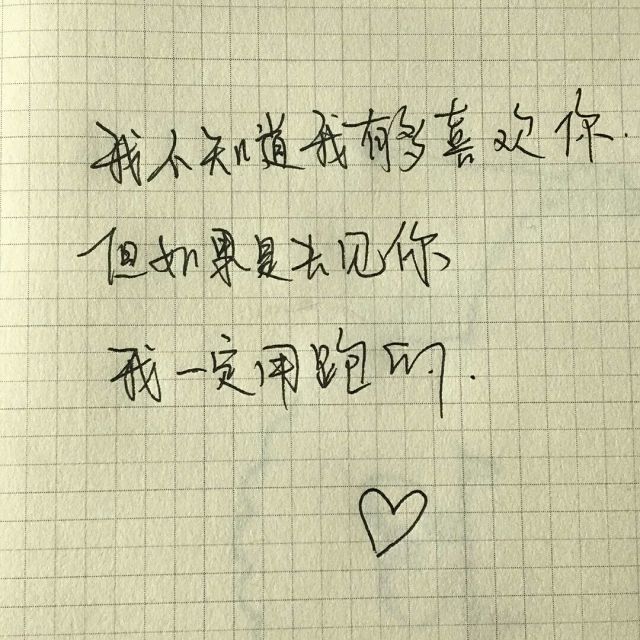 我不知道我有多喜欢你.
但如果是去见你
我一定用跑的.